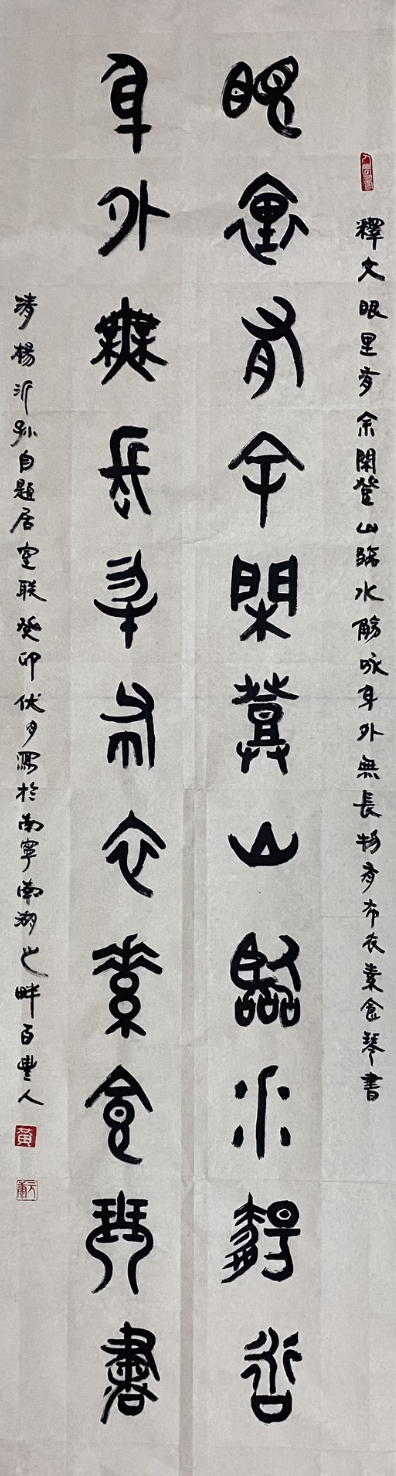 釋文眼里有余閑登山臨水觴咏身外無長物有布衣素食琴書
眼里有余閑登山臨水觴咏
身外無長物布衣素食琴書
清楊沂孫自題居室聯癸卯伏月寫於南寧南湖之畔百豐人
黃